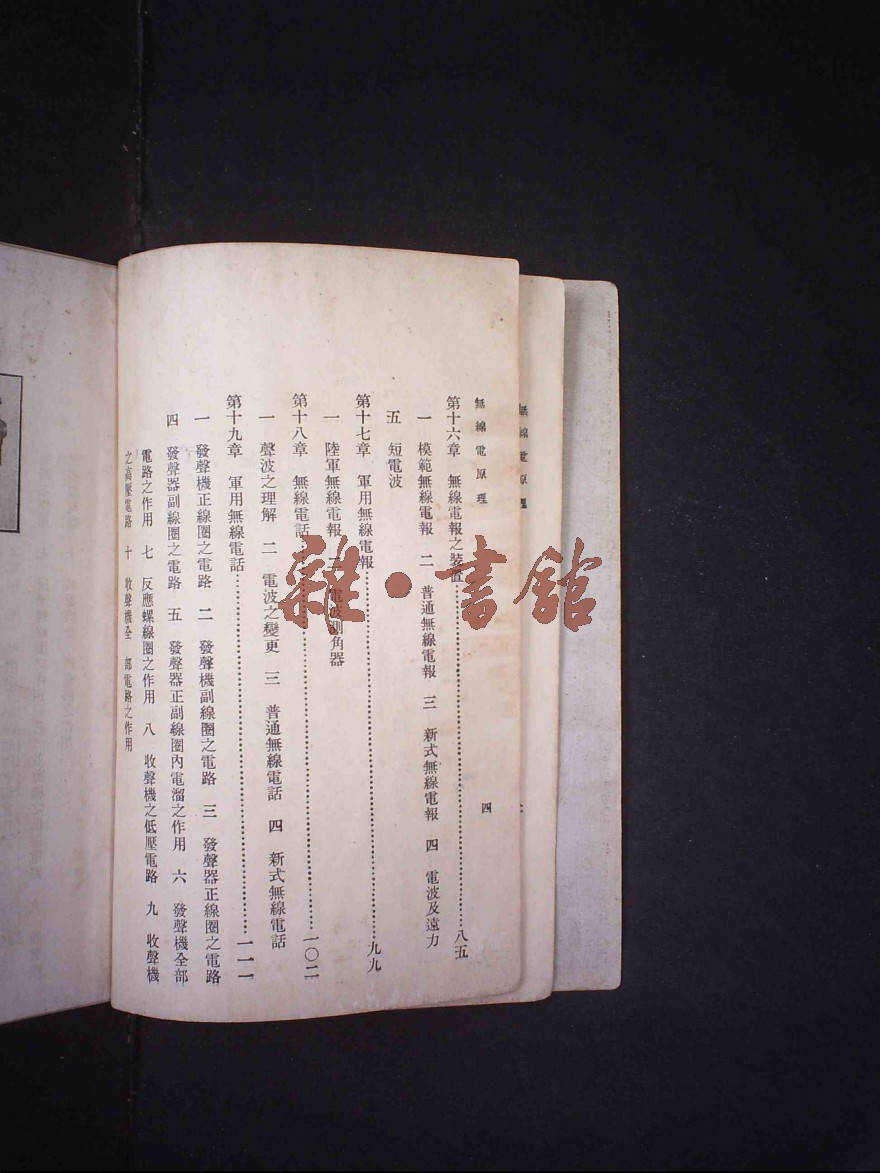 無線電原理
四
第十六章　無線電報之裝置……八五
一　模範無線電報　二　普通無線電報　三　新式無線電報　四　電波及遠力
五　短電波
第十七章　軍用無線電報……九九
一　陸軍無線電報　二　電波測角器
第十八章　無線電話……一〇二
一　聲波之理解　二　電波之變更　三　普通無線電話　四　新式無線電話
第十九章　軍用無線電話……一一一
一　發聲機正線圈之電路　二　發聲機副線圈之電路　三　發聲器正線圈之電路
四　發聲器副線圈之電路　五　發聲器正副線圈內電溜之作用　六　發聲機全部
電路之作用　七　反應螺線圈之作用　八　收聲機之低壓電路　九　收聲機
之高壓電路　十　收聲機全　部電路之作用
無線電原理
雜·書館